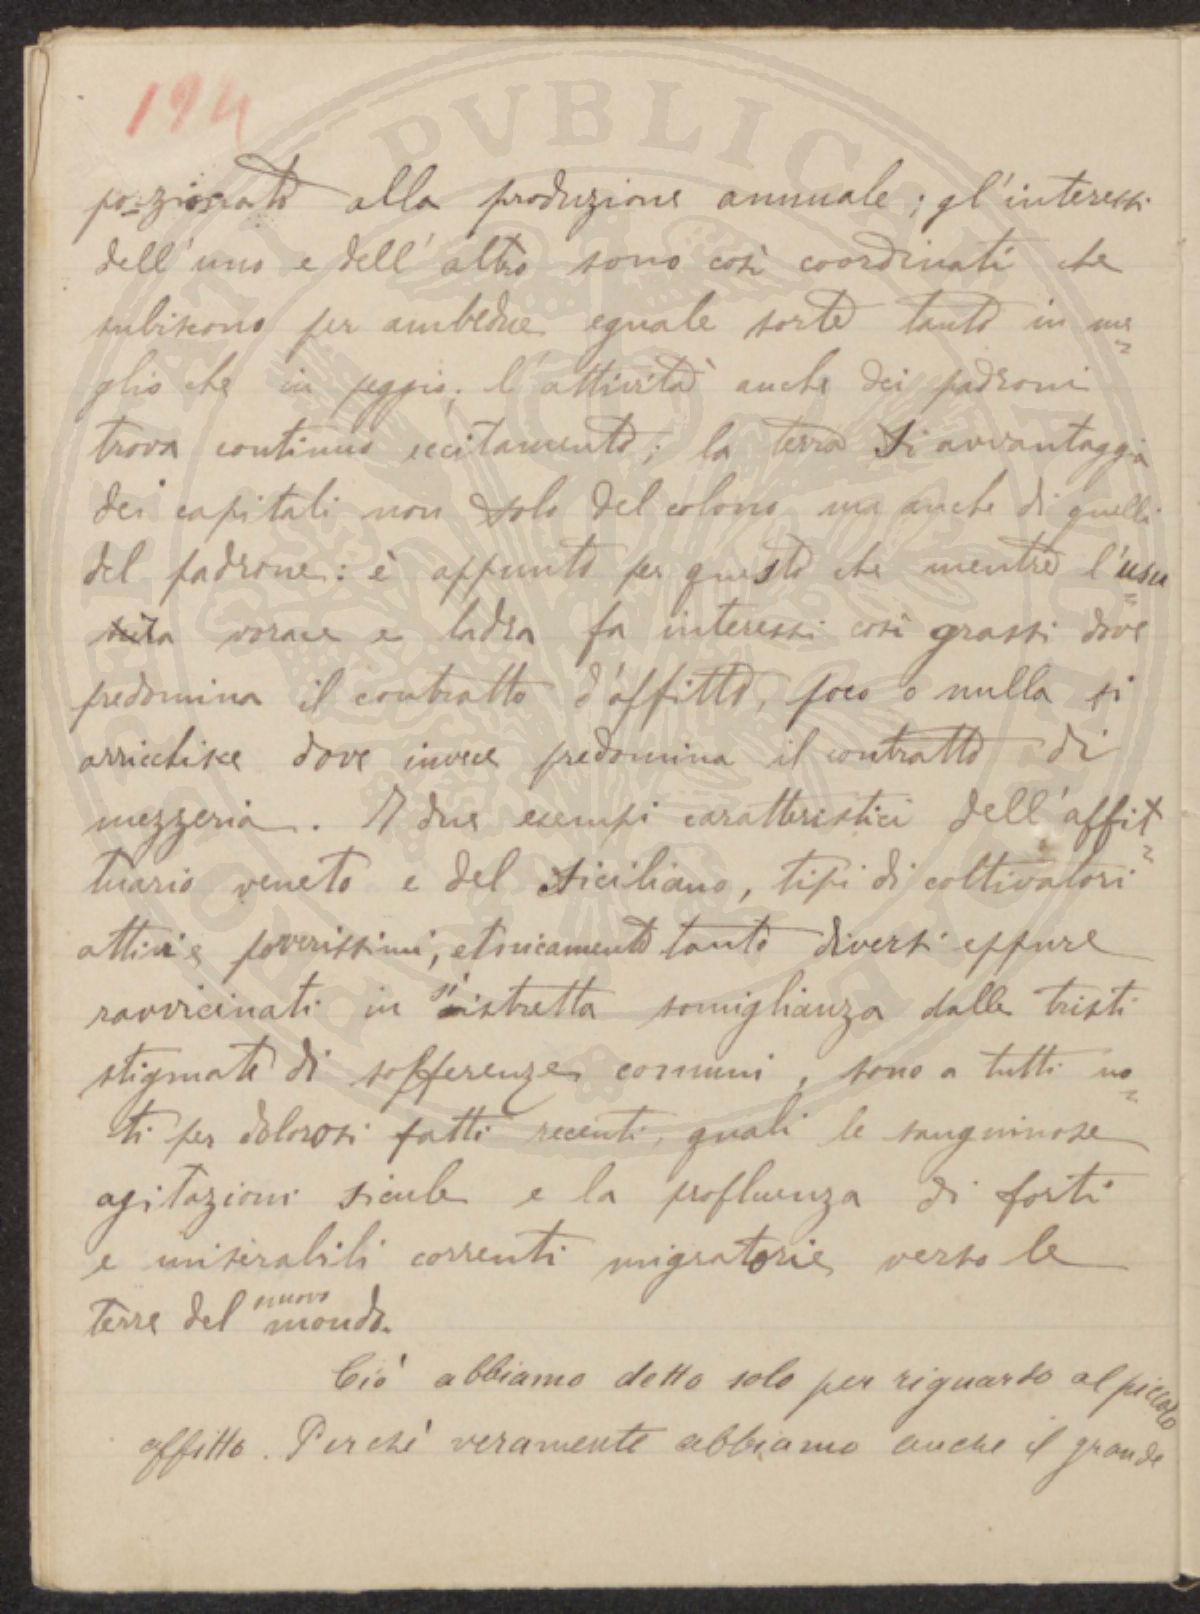 194
porzionato alla produzione annuale; gl'interessi
dell'uno e dell'altro sono così coordinati che
subiscono per ambedue eguale sorte tanto in me
glio che in peggio; l'attività anche dei padroni
trova continuo eccitamento; la terra si avvantaggia
dei capitali non solo del colono ma anche di quelli
del padrone: è appunto per questo che mentre l'usu
ra vorace e ladra fa interessi così grassi dove
predomina il contratto d'affitto, poco o nulla si
arricchisce dove invece predomina il contratto di
mezzeria. I due esempi caratteristici dell'affit
tuario veneto e del siciliano, tipi di coltivatori
attivi e poverissimi, etnicamente tanto diversi eppure
ravvicinati in sì stretta somiglianza dalle tristi
stigmate di sofferenze comuni, sono a tutti no
ti per dolorosi fatti recenti, quali le sanguinose
agitazioni sicule e la profluenza di forti
e miserabili correnti migratorie verso le
terre del nuovo mondo.
Ciò abbiamo detto solo per riguardo al piccolo
affitto. Perchè veramente abbiamo anche il grande